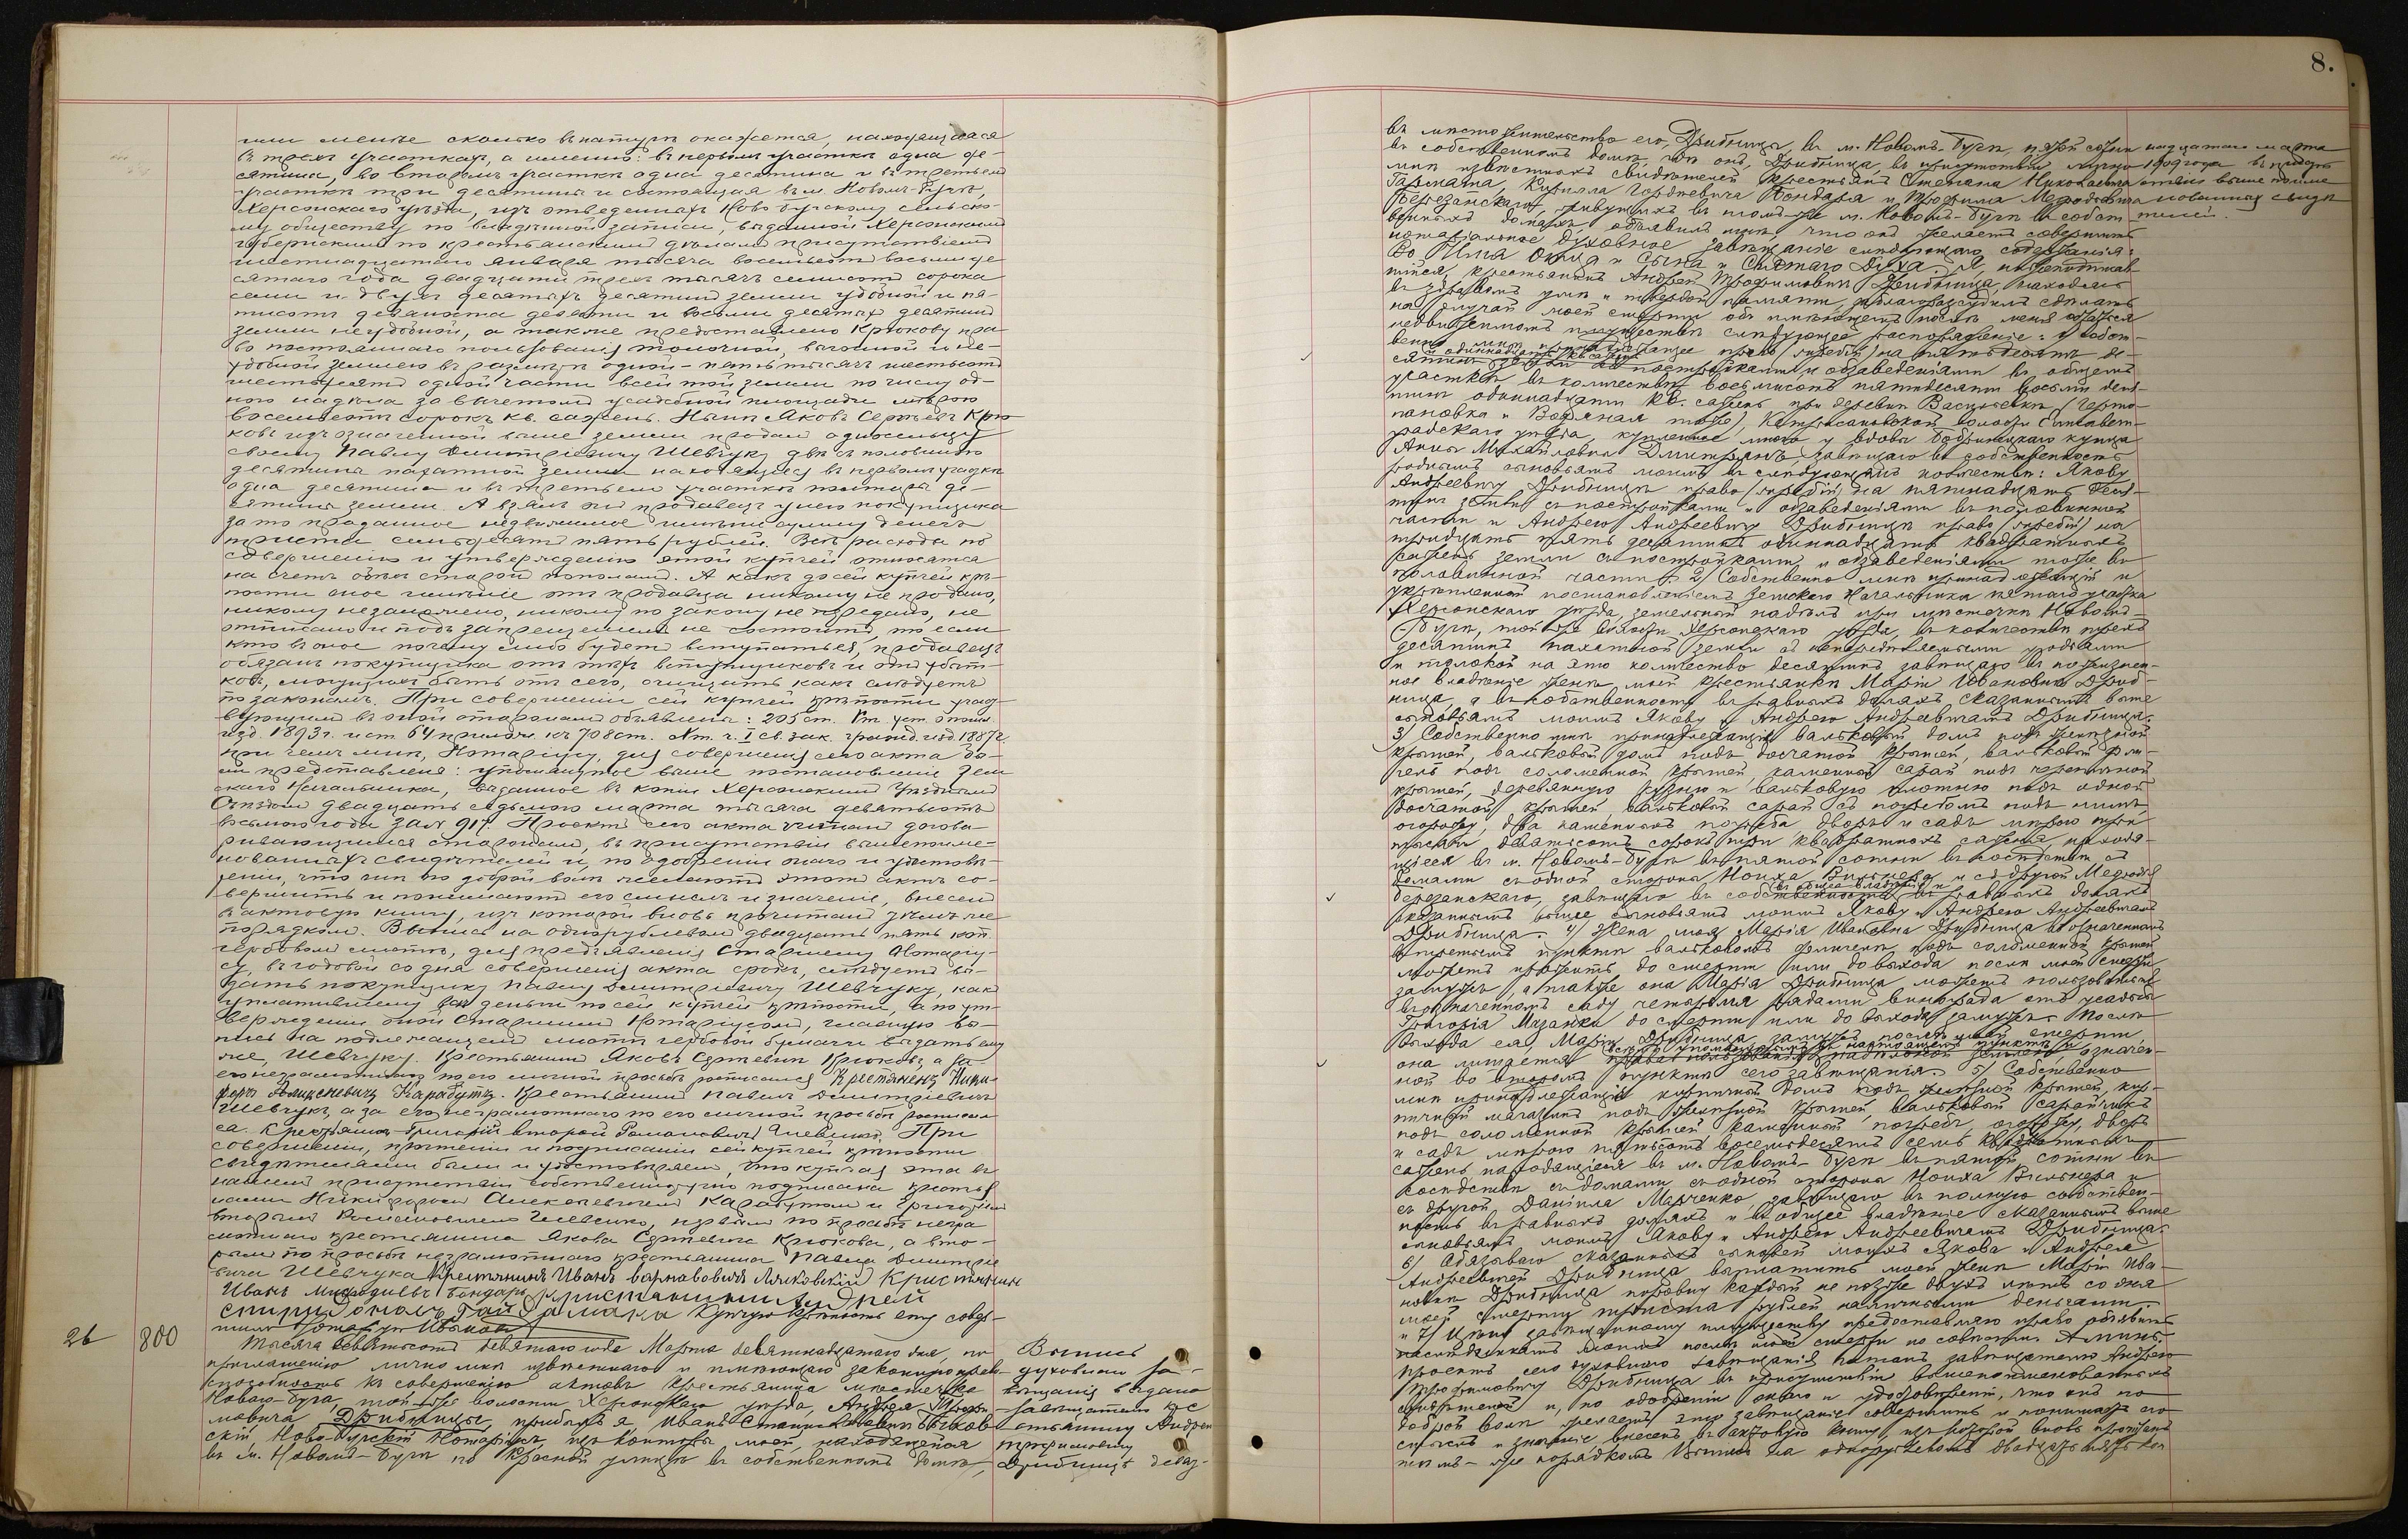 или менѣе сколько въ натурѣ окажется, находящаяся
въ трехъ участкахъ, а именно: въ первомъ участкѣ одна де-
сятина, во второмъ участкѣ одна десятина и въ третьемъ
участкѣ три десятины и состоящая въ м. Новомъ-Бугѣ,
Херсонскаго уѣзда, изъ отведенныхъ Ново-Бугскому сельско-
му обществу по владѣнной записи, выданной Херсонскимъ
губернскимъ по крестьянскимъ дѣламъ присутствіемъ
шестнадцатаго января тысяча восемьсотъ восемьде
сятаго года двадцати трехъ тысячъ семисотъ сорока
семи и двухъ десятыхъ десятинъ земли удобной и пя-
тисотъ девяноста девяти и восьми десятыхъ десятинъ
земли неудобной, а также предоставлено Крюкову пра-
во постояннаго пользованія толочной, выгонной и не-
удобной землею въ размѣрѣ одной-пять тысячъ шестьсотъ
шестьдесятъ одной части всей той земли по числу од-
ного надѣла за вычетомъ усадебной площади мѣрою
восемьсотъ сорокъ кв. сажень. Нынѣ Яковъ Сергѣевъ Крю
ковъ изъ означенной выше земли продалъ односельцу
своему Павлу Дмитріевичу Шевчуку двѣ съ половиною
десятины пахатной земли находящуюся въ первомъ участкѣ
одна десятина и въ третьемъ участкѣ полторы де-
сятины земли. А взялъ онъ продавецъ у него покупщика
за то проданное недвижимое имѣніе сумму денегъ
триста семьдесятъ пять рублей. Всѣ расходы по
совершенію и утвержденію этой купчей относятся
на счетъ обѣихъ сторонъ пополамъ. А какъ до сей купчей крѣ-
пости оное имѣніе отъ продавца никому не продано,
никому не заложено, никому по закону не передано, не
отписано и подъ запрещеніемъ не состоитъ, то если
кто въ оное почему либо будетъ вступаться, продавецъ
обязанъ покупщика отъ тѣхъ вступщиковъ и отъ убыт-
ковъ, могущихъ быть отъ сего, очищать какъ слѣдуетъ
по законамъ. При совершеніи сей купчей крѣпости участ-
вующимъ въ оной сторонамъ объявлены: 205 ст. Уст. о пошл.
изд. 1893 г. и ст. 64 прилож. къ 708 ст. X т. ч. I св. зак. гражд. изд. 1887 г.
при чемъ мнѣ, Нотаріусу, для совершенія сего акта бы-
ли представлены: упомянутое выше постановленіе Зем
скаго Начальника, выданное въ копіи Херсонскимъ Уѣзднымъ
Съѣздомъ двадцать седьмого марта тысяча девятьсотъ
восьмого года за № 917. Проектъ сего акта читанъ догова-
ривающимся сторонамъ, въ присутствіи вышепоиме-
нованныхъ свидѣтелей и, по одобреніи онаго и удостовѣ-
реніи, что они по доброй волѣ желаютъ этотъ актъ со-
вершить и понимаютъ его смыслъ и значеніе, внесенъ
въ актовую книгу, изъ которой вновь прочитанъ тѣмъ же
порядкомъ. Выпись на однорублевомъ двадцать пять коп.
гербовомъ листѣ, для предъявленія Старшему Нотаріу-
су, въ годовой со дня совершенія акта срокъ, слѣдуетъ вы-
дать покупщику Павлу Дмитріевичу Шевчуку, какъ
уплатившему деньги по сей купчей крѣпости, а по ут-
вержденіи оной Старшимъ Нотаріусомъ, главную вы-
пись на подлежащемъ листѣ гербовой бумаги выдать ему
же, Шевчуку. Крестьянинъ Яковъ Сергѣевичъ Крюковъ, а за
его неграмотнаго по его личной просьбѣ расписался Крестянинъ Ники-
форъ Алексѣевичъ Карабутъ. Крестьянинъ Павелъ Дмитріевичъ
Шевчукъ, а за его неграмотнаго по его личной просьбѣ росписал
ся. Крестьянинъ Григорій второй Романовичъ Гневенко. При
совершеніи, прочтеніи и подписаніи сей купчей крѣпости
свидѣтелями были и удостовѣряемъ, что купчая эта въ
нашемъ присутствіи собственноручно подписана крестья
нами Никифоромъ Алексѣевичемъ Карабутомъ и Григоріемъ
вторымъ Романовичемъ Гневенко, первымъ по просьбѣ негра
мотнаго крестьянина Якова Сергѣевича Крюкова, а вто-
рымъ по просьбѣ неграмотнаго крестьянина Павла Дмитріе
вича Шевчука Крестянинъ Иванъ Варнавовичъ Лиховскій Кристянинъ
Иванъ Мефодіевъ Бондарь Кристянинъ Андрей
Спиридоновъ Гайдамака Купчую крѣпость эту совер-
шилъ Нотаріусъ Ивановъ
26 800 Тысяча девятьсотъ девятаго года Марта девятнадцатаго дня, по
приглашенію лично мнѣ извѣстнаго и имѣющаго законную прав-
оспособность къ совершенію актовъ крестьянина мѣстечка
Новаго-Буга, той-же волости Херсонскаго уѣзда, Андрея Трофи-
мовича Дрибницы, прибылъ я, Иванъ
скій Ново-Бугскій Нотаріусъ, изъ конторы моей, находящейся
въ м. Новомъ-Бугѣ по Красной улицѣ въ собственномъ домѣ,
Выпись
духовнаго за-
вѣщанія выдана
завѣщателю кре
стьянину Андрею
Трофимовичу
Дрибницѣ девят-
8.
надцатаго марта
1909 года въ присут-
ствіи выше поиме
нованныхъ свидѣ
телей.
въ мѣстожительство его, Дрибницы, въ м. Новомъ-Бугѣ, пятой сотни
въ собственномъ домѣ, гдѣ онъ, Дрибница, въ присутствіи лично
мнѣ извѣстныхъ свидѣтелей крестьянъ Степана Николаевича
Гармата, Кирилла Гордѣевича Бондаря и Трофима Мефодьевича
Березанскаго, живущихъ въ томъ-же м. Новомъ-Бугѣ въ собст-
венныхъ домахъ, объявилъ мнѣ, что онъ желаетъ совершить
нотаріальное духовное завѣщаніе слѣдующаго содержанія:
Во Имя Отца и Сына и Святаго Духа. Я, нижеподписав-
шійся, крестьянинъ Андрей Трофимовичъ Дрибница, находясь
въ здравомъ умѣ и твердой памяти, заблагоразсудилъ сдѣлать
на случай моей смерти объ имѣющемъ послѣ меня остаться
недвижимомъ имуществѣ слѣдующее распоряженіе: 1) собст-
венно мнѣ принадлежащее право (жребій) на пятьдесятъ де-
сятинъ одиннадцать кв. сажень земли съ постройками и обзаведеніями въ общемъ
участкѣ въ количествѣ восьмисотъ пятидесяти восьми деся-
тинъ одиннадцати кв. сажень при деревнѣ Васильевкѣ (Черто-
пановка и Водяная тожъ), Кетрисановской волости Елисавет-
градскаго уѣзда, купленное мною у вдовы Бобринецкаго купца
Анны Михайловны Дмитрянъ, завѣщаю въ собственность
роднымъ сыновьямъ моимъ въ слѣдующемъ количествѣ: Якову
Андреевичу Дрибницѣ право (жребій) на пятнадцать деся-
тинъ земли съ постройками и обзаведеніями въ половинной
части и Андрею Андреевичу Дрибницѣ право (жребій) на
тридцать пять десятинъ одиннадцать квадратныхъ
сажень земли съ постройками и обзаведеніями тоже въ
половинной части; 2) Собственно мнѣ принадлежащій и
укрѣпленный постановленіемъ Земскаго Начальника пятаго участка
Херсонскаго уѣзда, земельный надѣлъ при мѣстечкѣ Новомъ-
Бугѣ, той же волости Херсонскаго уѣзда, въ количествѣ трехъ
десятинъ пахатной земли съ неопредѣляемыми угодьями
и толокой на это количество десятинъ завѣщаю въ пожизнен-
ное владѣніе женѣ моей крестьянкѣ Маріи Ивановнѣ Дриб-
ница, а въ собственность въ равныхъ доляхъ сказаннымъ выше
сыновьямъ моимъ Якову и Андрею Андреевичамъ Дрибница.
3) Собственно мнѣ принадлежащій вальковый домъ подъ желѣзной
крышей, вальковый домъ подъ досчатой крышей, вальковый фли-
гель подъ соломенной крышей, каменный сарай подъ черепичной
крышей, деревянную кузню и вальковую плотню подъ одной
досчатой крышей, вальковый сарай съ погребомъ подъ нимъ
огорожу, два каменныхъ погреба дворъ и садъ мѣрою три
тысячи девятьсотъ сорокъ три квадратныхъ сажня, находя-
щіеся въ м. Новомъ-Бугѣ въ пятой сотнѣ въ сосѣдствѣ съ
домами съ одной стороны Ноиха Вильнера и съ другой Мефодія
Березанскаго, завѣщаю въ общее владѣніе и собственность въ равныхъ доляхъ
сказаннымъ выше, сыновьямъ моимъ Якову и Андрею Андреевичамъ
Дрибница. 4) Жена моя Марія Ивановна Дрибница въ означенномъ
въ третьемъ пунктѣ вальковомъ флигелѣ подъ соломенной крышей
можетъ прожить до смерти или до выхода послѣ моей смерти
замужъ, а также она Марія Дрибница можетъ пользоваться
въ означенномъ саду четырьмя рядами винограда отъ усадьбы
Григорія Мазанки до смерти или до выхода замужъ. Послѣ
выхода ея, Маріи Дрибница замужъ послѣ моей смерти
она лишается всего упомянутаго въ настоящемъ пунктѣ и права пользованія надѣльной землей, означен-
ной во второмъ пунктѣ сего завѣщанія. 5) Собственно
мнѣ принадлежащій кирпичный домъ подъ желѣзной крышей, кир-
пичный магазинъ подъ желѣзной крышей, вальковый сарайчикъ
подъ соломенной крышей каменный погребъ, огорожу, дворъ
и садъ мѣрою пятьсотъ восемьдесятъ семь квадратныхъ
сажень находящіеся въ м. Новомъ-Бугѣ въ пятой сотнѣ въ
сосѣдствѣ съ домами съ одной стороны Ноиха Вильнера и
съ другой Даніила Марченко, завѣщаю въ полную собствен-
ность въ равныхъ доляхъ и въ общее владѣніе сказаннымъ выше
сыновьямъ моимъ Якову и Андрею Андреевичамъ Дрибница.
6) Обязываю сказанныхъ сыновей моихъ Якова и Андрея
Андреевичей Дрибница выплатить моей женѣ Маріи Ива-
новнѣ Дрибница поровну каждый не позже двухъ лѣтъ со дня
моей смерти триста рублей наличными деньгами.
и 7) Цѣну завѣщанному имуществу предоставляю право объявить
наслѣдникамъ моимъ послѣ моей смерти по совѣсти. Аминь.
Проектъ сего духовнаго завѣщанія читанъ завѣщателю Андрею
Трофимовичу Дрибница въ присутствіи вышепоименованныхъ
свидѣтелей и, по одобреніи онаго и удостовѣреніи, что онъ по
доброй волѣ желаетъ это завѣщаніе совершить и понимаетъ его
смыслъ и значеніе внесенъ въ актовую книгу, изъ которой вновь прочитанъ
тѣмъ-же порядкомъ. Выпись на однорублевомъ двадцать пять коп